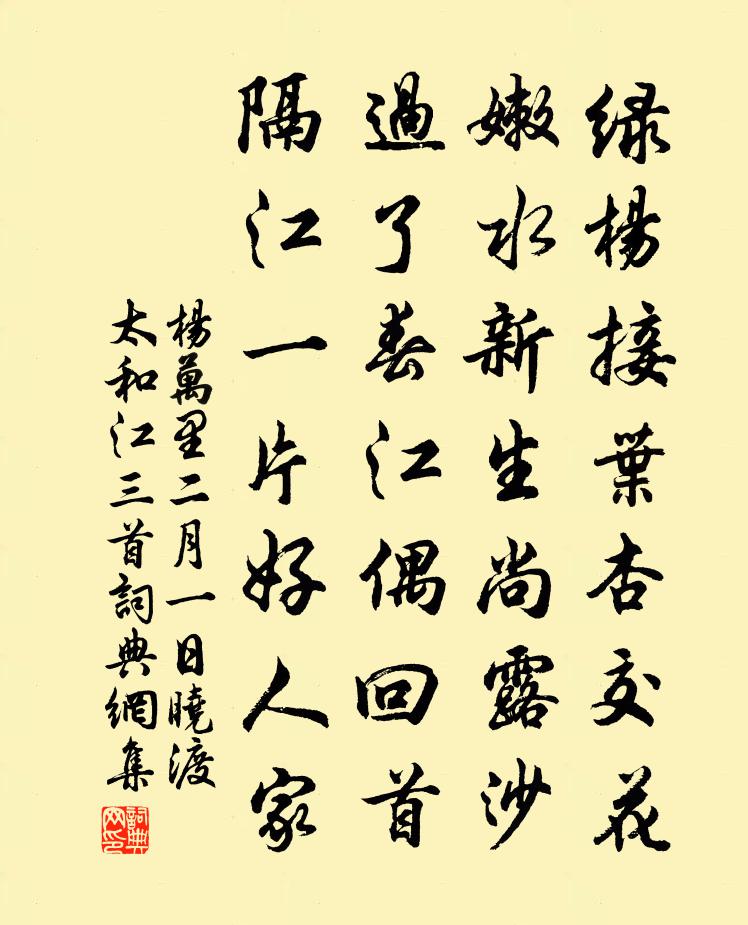 绿楊接葉杏交花
嫩水新生尚露沙
過了春江偶回首
隔江一片好人家
楊萬里二月一日曉渡
太和江三首詞典網集
詞典
网印